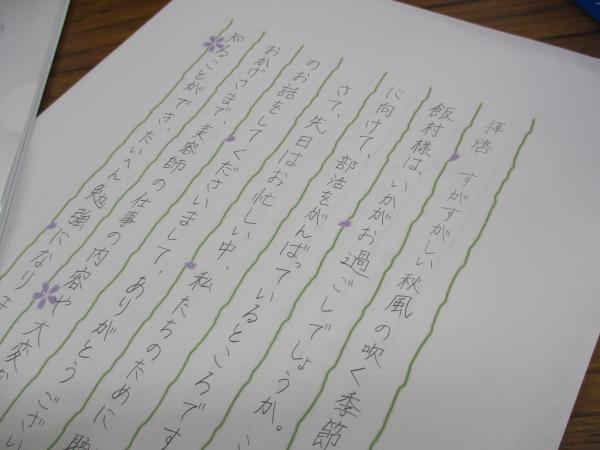 拝啓　すがすがしい秋風の吹く季節
飯村様は、いかがお過ごしでしょうか。
に向けて、部活をがんばっているところです
さて、先日はお忙しい中、私たちのために
のお話をしてくださいまして、ありがとうござい
おかげさまで、美容師の仕事の内容や大変な
知ることができ、たいへん勉強になりま